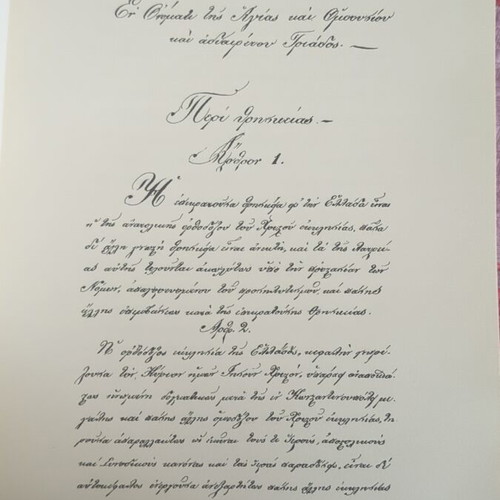 Ἐν Ὀνόματι τῆς Ἁγίας καὶ Ὁμοουσίου
καὶ ἀδιαιρέτου Τριάδος. —
Περὶ θρησκείας. —
Ἄρθρον 1.
Ἡ ἐπικρατοῦσα θρησκεία εἰς τὴν Ἑλλάδα εἶναι
ἡ τῆς ἀνατολικῆς ὀρθοδόξου τοῦ Χριστοῦ ἐκκλησίας, πᾶσα
δὲ ἄλλη γνωστὴ θρησκεία εἶναι ἀνεκτὴ, καὶ τὰ τῆς λατρεί
ας αὐτῆς τελοῦνται ἀκωλύτως ὑπὸ τὴν προστασίαν τῶν
Νόμων, ἀπαγορευομένου τοῦ προσηλυτισμοῦ, καὶ πάσης
ἄλλης ἐπεμβάσεως κατὰ τῆς ἐπικρατούσης θρησκείας.
Ἄρθρ. 2.
Ἡ ὀρθόδοξος ἐκκλησία τῆς Ἑλλάδος, κεφαλὴν γνωρί
ζουσα τὸν Κύριον ἡμῶν Ἰησοῦν Χριστὸν, ὑπάρχει ἀναποσπά
στως ἡνωμένη δογματικῶς μετὰ τῆς ἐν Κωνσταντινουπόλει με
γάλης καὶ πάσης ἄλλης ὁμοδόξου τοῦ Χριστοῦ ἐκκλησίας, τη
ροῦσα ἀπαραλλάκτως ὡς ἐκεῖναι τούς τε ἱεροὺς, ἀποστολικοὺς
καὶ Συνοδικοὺς κανόνας καὶ τὰς ἱερὰς παραδόσεις, εἶναι δὲ
αὐτοκέφαλος ἐνεργοῦσα ἀνεξαρτήτως πάσης ἄλλης ἐκκλησίας